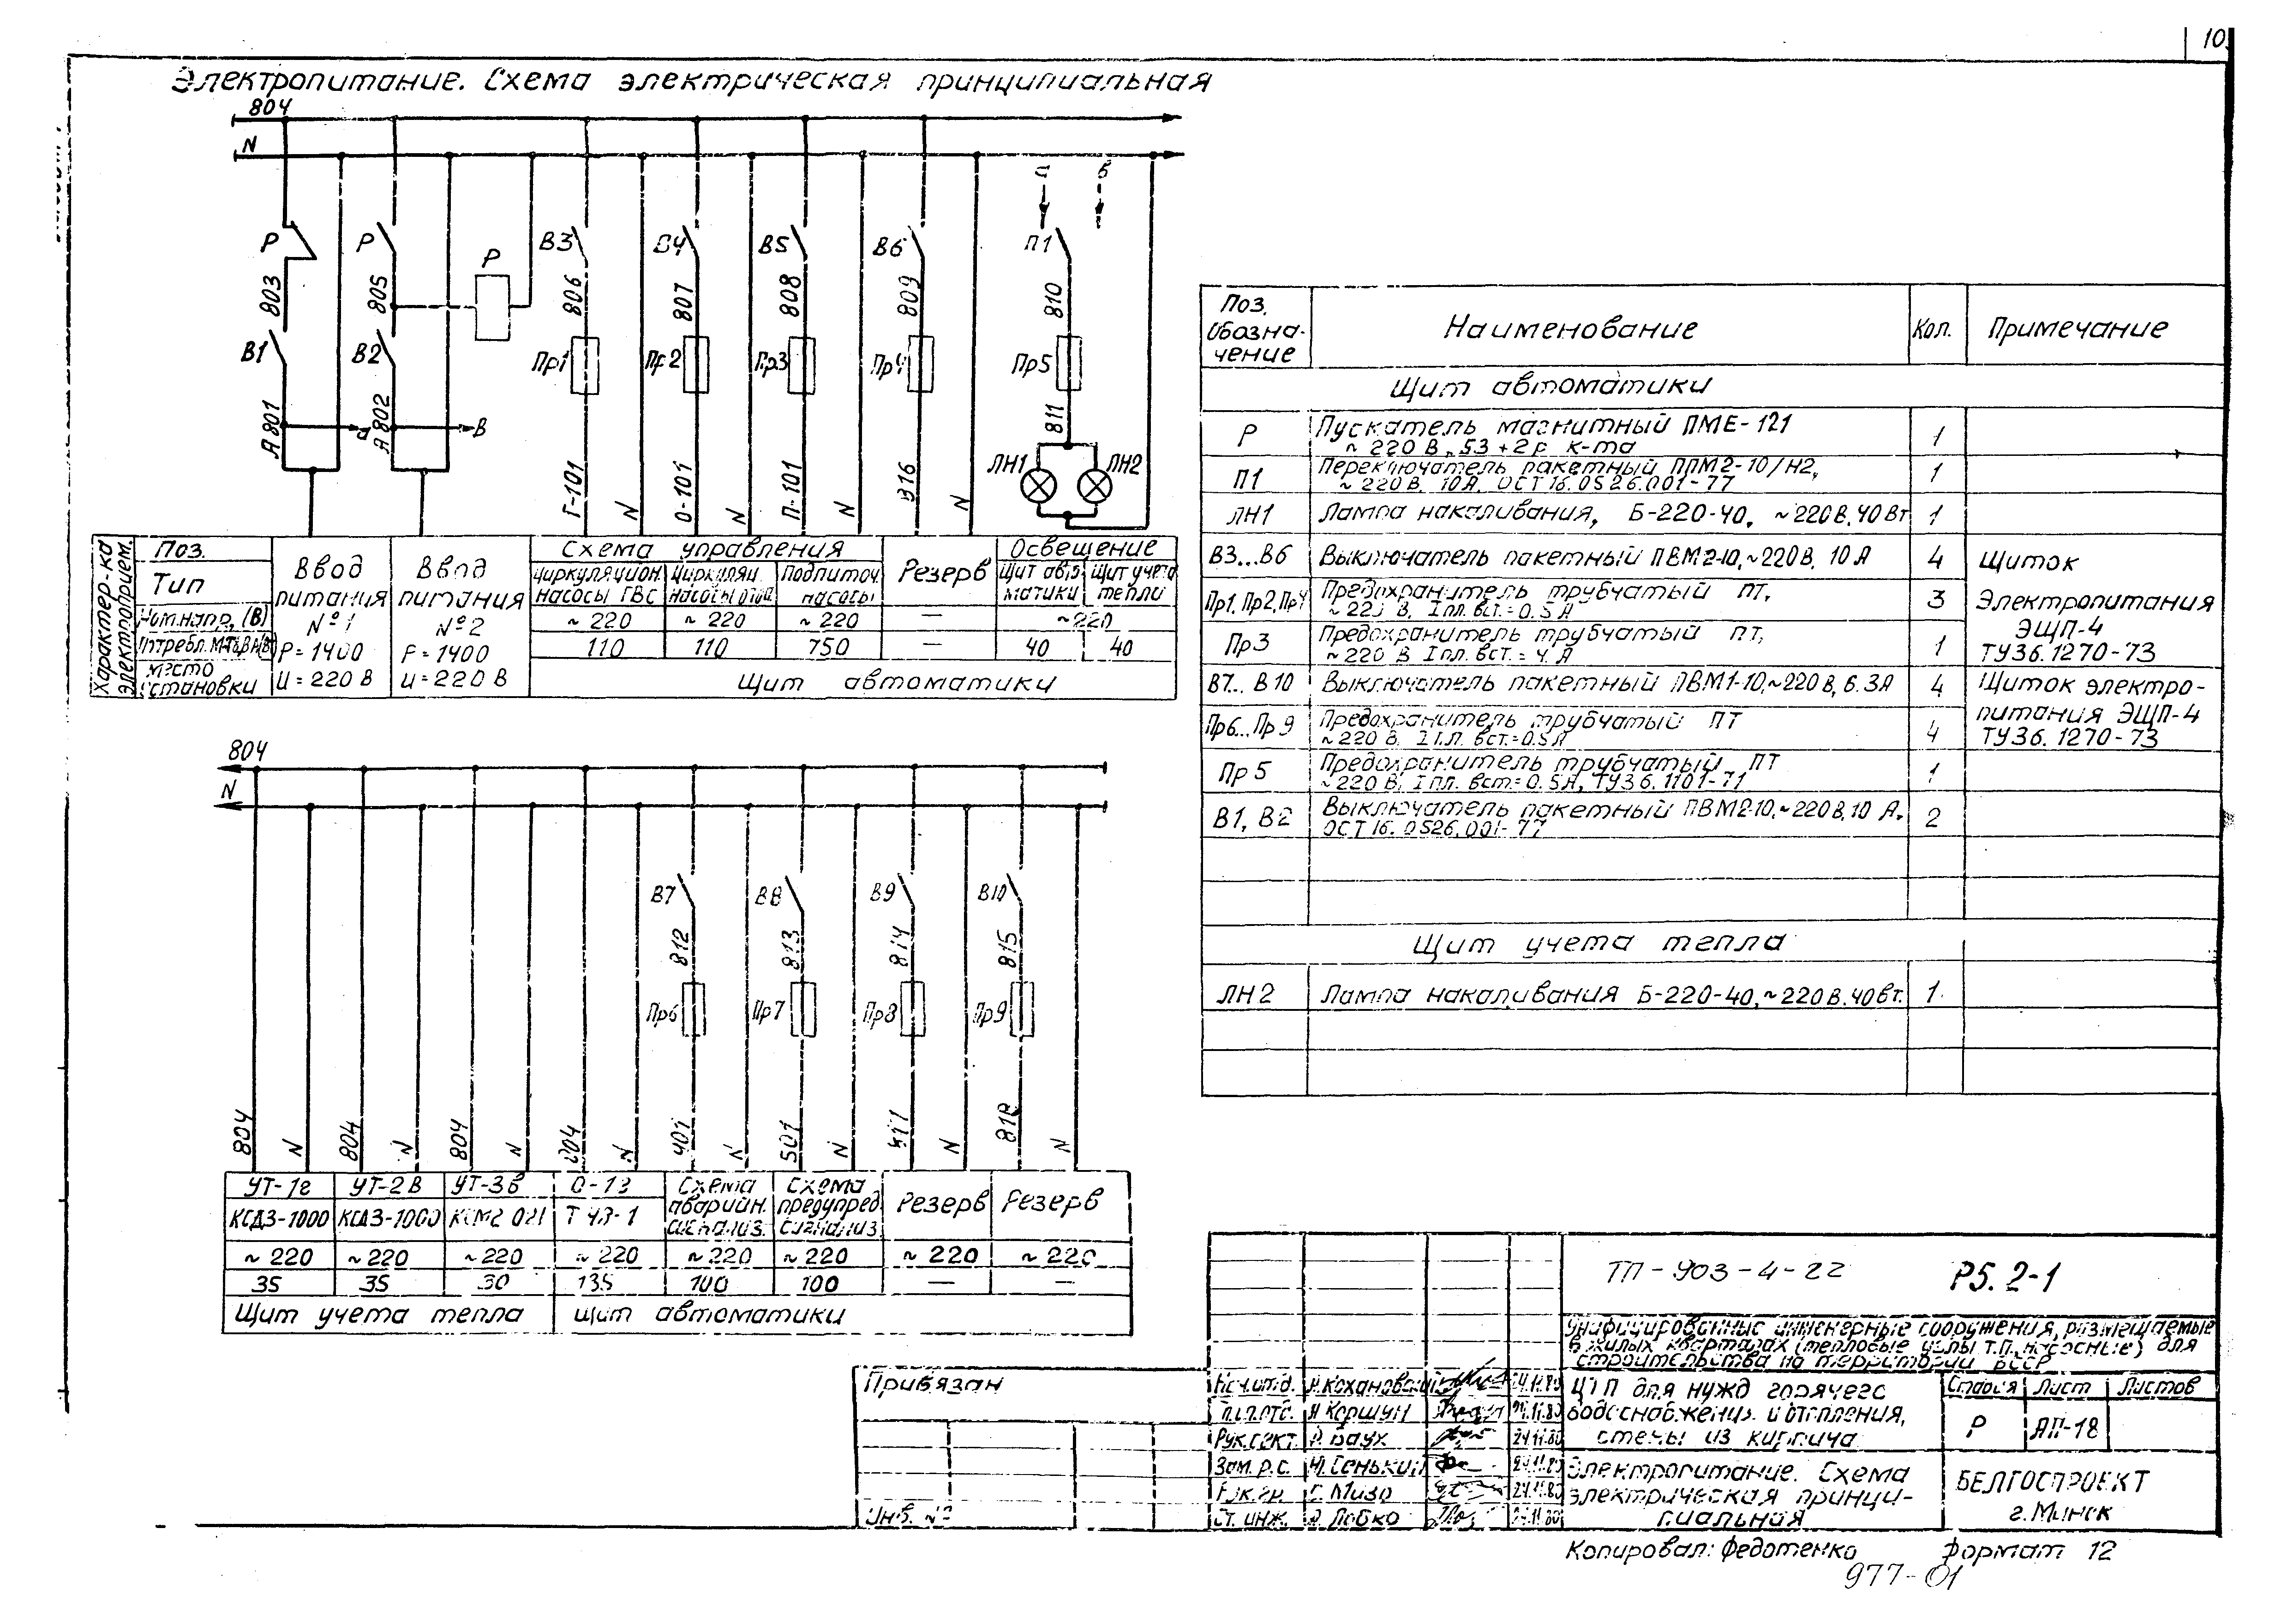 10
Электропитание. Схема электрическая принципиальная
804
N
а
в
Р
Р
Р
В3
В4
В5
В6
П1
803
805
806
807
808
809
810
В1
В2
Пр1
Пр2
Пр3
Пр4
Пр5
А801
а
А802
в
811
ЛН1
ЛН2
Г-101
N
О-101
N
П-101
N
816
N
Характер-ка электроприем.
Поз.
Тип
Ном.напр. (В)
Потребл.
Место установки
Ввод питания №1
Р=1400
U=220 В
Ввод питания №2
Р=1400
U=220 В
Схема управления
Резерв
Освещение
Циркуляцион. насосы ГВС
Циркуляц. насосы отоп.
Подпиточ. насосы
Щит автоматики
Щит учета тепла
~220
~220
~220
—
~220
110
110
750
—
40
40
Щит автоматики
804
N
В7
В8
В9
В10
812
813
814
815
Пр6
Пр7
Пр8
Пр9
804
N
804
N
804
N
804
N
401
N
501
N
N
N
УТ-1г
УТ-2В
УТ-3в
Схема аварийн. сигнализ.
Схема предупред. сигнализ.
Резерв
Резерв
КСД3-1000
КСД3-1000
~220
~220
~220
~220
~220
~220
~220
~220
35
35
30
135
100
100
—
—
Щит учета тепла
щит автоматики
Поз. Обозна-чение
Наименование
Кол.
Примечание
Щит автоматики
Р
Пускатель магнитный ПМЕ-121
~220 В, 53+2р к-та
1
П1
Переключатель пакетный ППМ2-10/Н2,
~220 В, 10А, ОСТ 16.0526.001-77
1
ЛН1
Лампа накаливания, Б-220-40, ~220В, 40Вт
1
В3...В6
Выключатель пакетный ПВМ2-10,~220В, 10 А
4
Щиток
Пр1, Пр2, Пр4
Предохранитель трубчатый ПТ,
~220 В, Iпл. вст.=0.5 А
3
Электропитания
ЭЩП-4
Пр3
Предохранитель трубчатый ПТ,
~220 В Iпл. вст.=4 А
1
ТУ36.1270-73
В7... В10
Выключатель пакетный ПВМ1-10,~220В, 6.3А
4
Щиток электро-
Пр6... Пр9
Предохранитель трубчатый ПТ
~220 В, Iпл. вст.=0.5А
4
питания ЭЩП-4
ТУ36.1270-73
Пр5
Предохранитель трубчатый ПТ
~220 В, Iпл. вст=0.5А, ТУ36.1101-71
1
В1, В2
Выключатель пакетный ПВМ2-10,~220В,10 А.
ОСТ 16.0526.001-77
2
Щит учета тепла
ЛН2
Лампа накаливания Б-220-40,~220В.40Вт.
1
ТП-903-4-22
Р5.2-1
Унифицированные инженерные сооружения, размещаемые
в жилых кварталах (тепловые узлы т.п. насосные) для
строительства на территории БССР
Привязан
Инв. №
Нач.отд.
24.11.80
Коршун
24.11.80
Рук.сект.
Баух
24.11.80
Зам.р.с.
Сенькин
24.11.80
Рук.гр.
24.11.80
Ст. инж.
24.11.80
ЦТП для нужд горячего
водоснабжения и отопления,
стены из кирпича
Стадия
Лист
Листов
Р
АП-18
Электропитание. Схема
электрическая принци-
пиальная
БЕЛГОСПРОЕКТ
г.Минск
Копировал: Федотенко
Формат 12
977-01